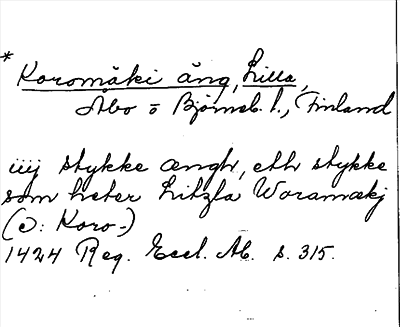 *
Koromäki äng, Lilla,
Åbo o Björneb. l., Finland
iiij stykke ængh, eth stykke
som heter Litzla Woramækj
(ɔ: Koro-)
1424 Reg. Eccl. Ab. s. 315.